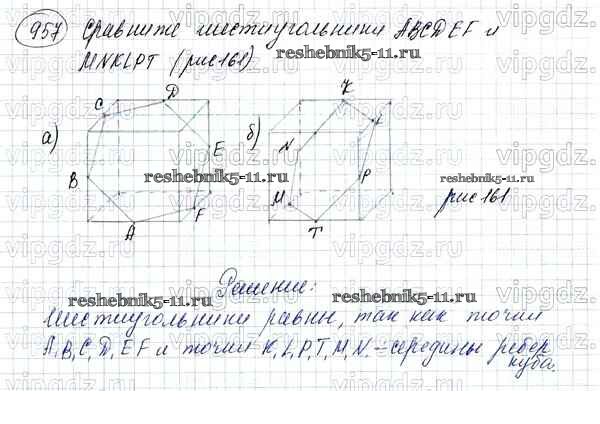 957 Сравните шестиугольники ABCDEF и
MNKLPT (рис161)
reshebnik5-11.ru
а)
C
D
B
E
A
F
reshebnik5-11.ru
б)
K
L
N
M
P
T
reshebnik5-11.ru
рис161
Решение:
reshebnik5-11.ru
reshebnik5-11.ru
Шестиугольники равны, так как точки
A, B, C, D, E F и точки K, L, P, T, M, N. – середины ребер
куба.
vipgdz.com